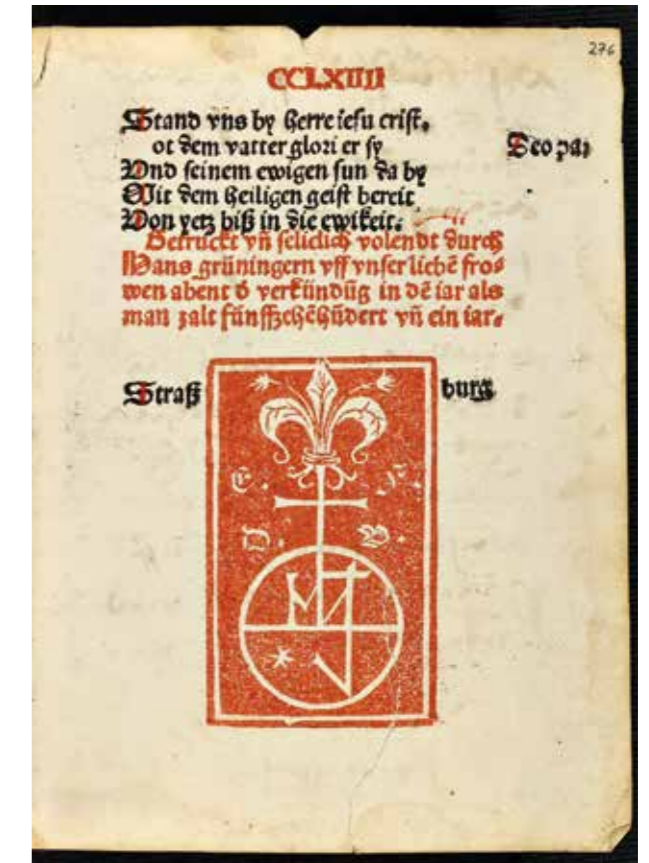 276
CCLXIIII
Stand vns by herre iesu crist.
ot dem vatter glori er sy
Deo pa;
Vnd seinem ewigen sun da by
Mit dem heiligen geist bereit
Von yetz biß in die ewikeit.
Getruckt vñ seliclich volendt durch
Hans grüningern vff vnser liebē fro⸗
wen abent ð verkündūg in dē iar als
man zalt fünffzehēhūdert vñ ein iar.
Straß burg